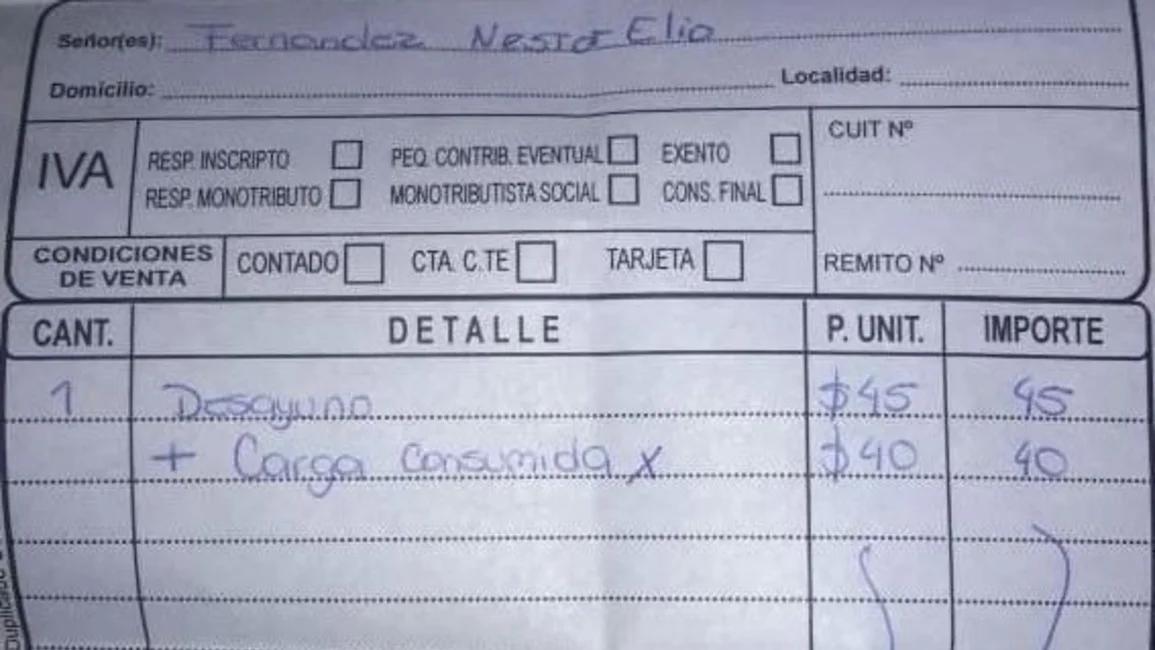 Señor(es): Fernandez Nestor Elio
Domicilio: Localidad:
IVA
RESP. INSCRIPTO PEQ. CONTRIB. EVENTUAL EXENTO
RESP. MONOTRIBUTO MONOTRIBUTISTA SOCIAL CONS. FINAL
CUIT Nº
CONDICIONES DE VENTA CONTADO CTA. C.TE TARJETA
REMITO Nº
CANT. DETALLE P. UNIT. IMPORTE
1 Desayuno $45 45
+ Carga Consumida x $40 40
Duplicado